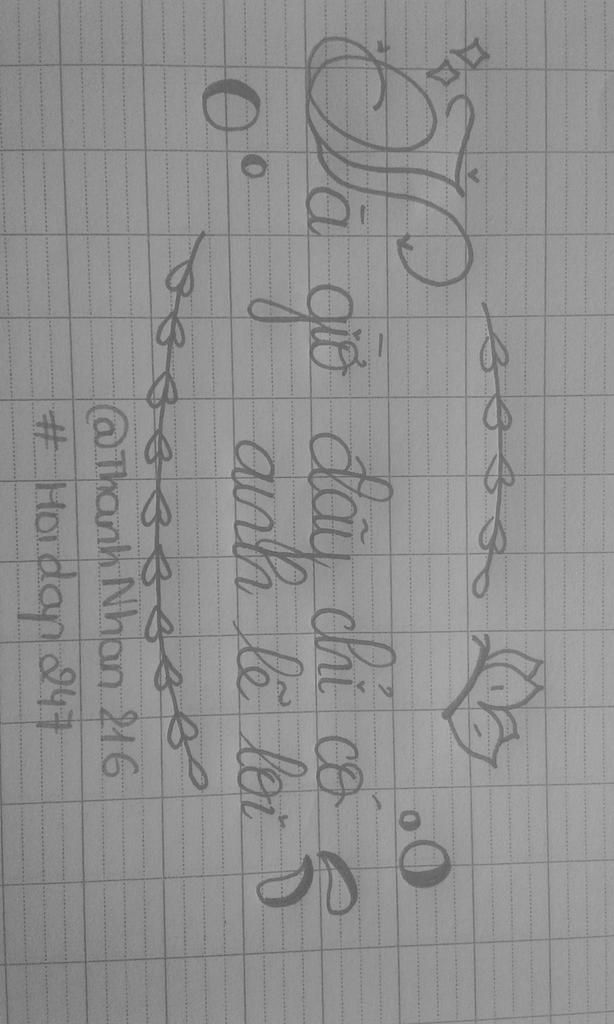 Và giờ đãy chỉ có
anh lẽ loi
@ThanhNhan216
# Hoidap247